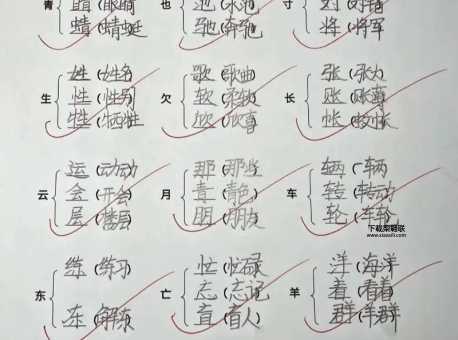 青 睛(眼睛 也 池(水池 寸 对(
蜻(蜻蜓 驰(奔驰 将(将军
生 姓(姓名 欠 歌(歌曲 长 张(张大
性(性别 软(柔软 账(账
牲(牺牲 欣(欣 帐(蚊帐
云 运(运动 月 那(那些 车 辆(车辆
会(开会) 青(青色) 转(转动
层(楼层 朋(朋友 轮(车轮
下载梨聊联
www.xiaaolli.com
东 练(练习 亡 忙(忙碌 羊 洋(海洋
忘(忘记 着(看着
冻(解冻 盲(盲人 群(羊群